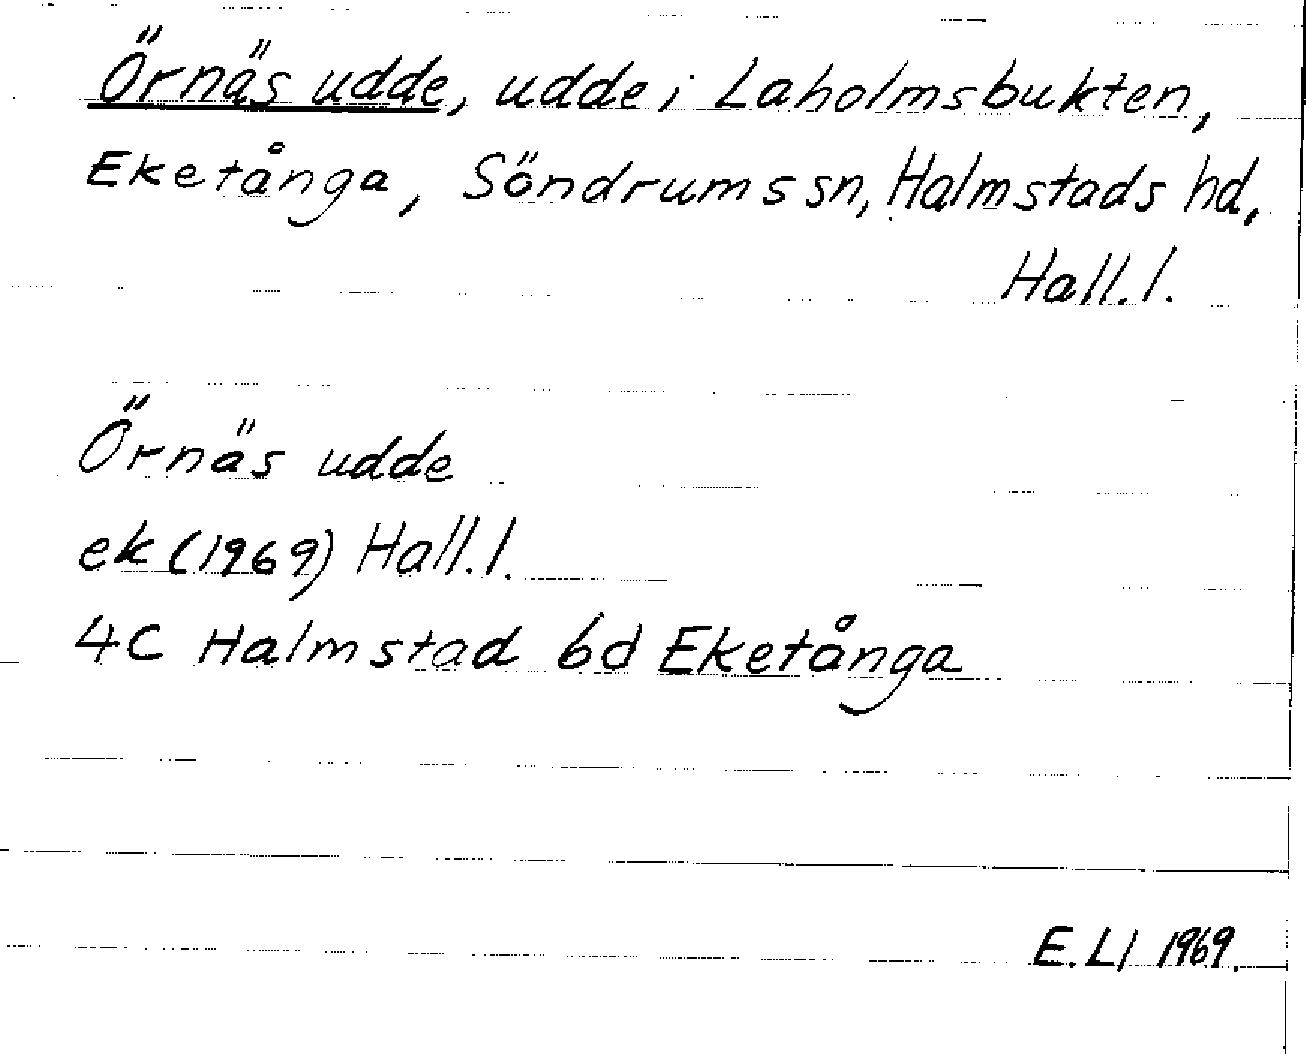 Örnäs udde, udde i Laholmsbukten,
Eketånga, Söndrums sn, Halmstads hd,
Hall. l.
Örnäs udde
ek (1969) Hall. l.
4C Halmstad 6d Eketånga
E. Ll 1969.